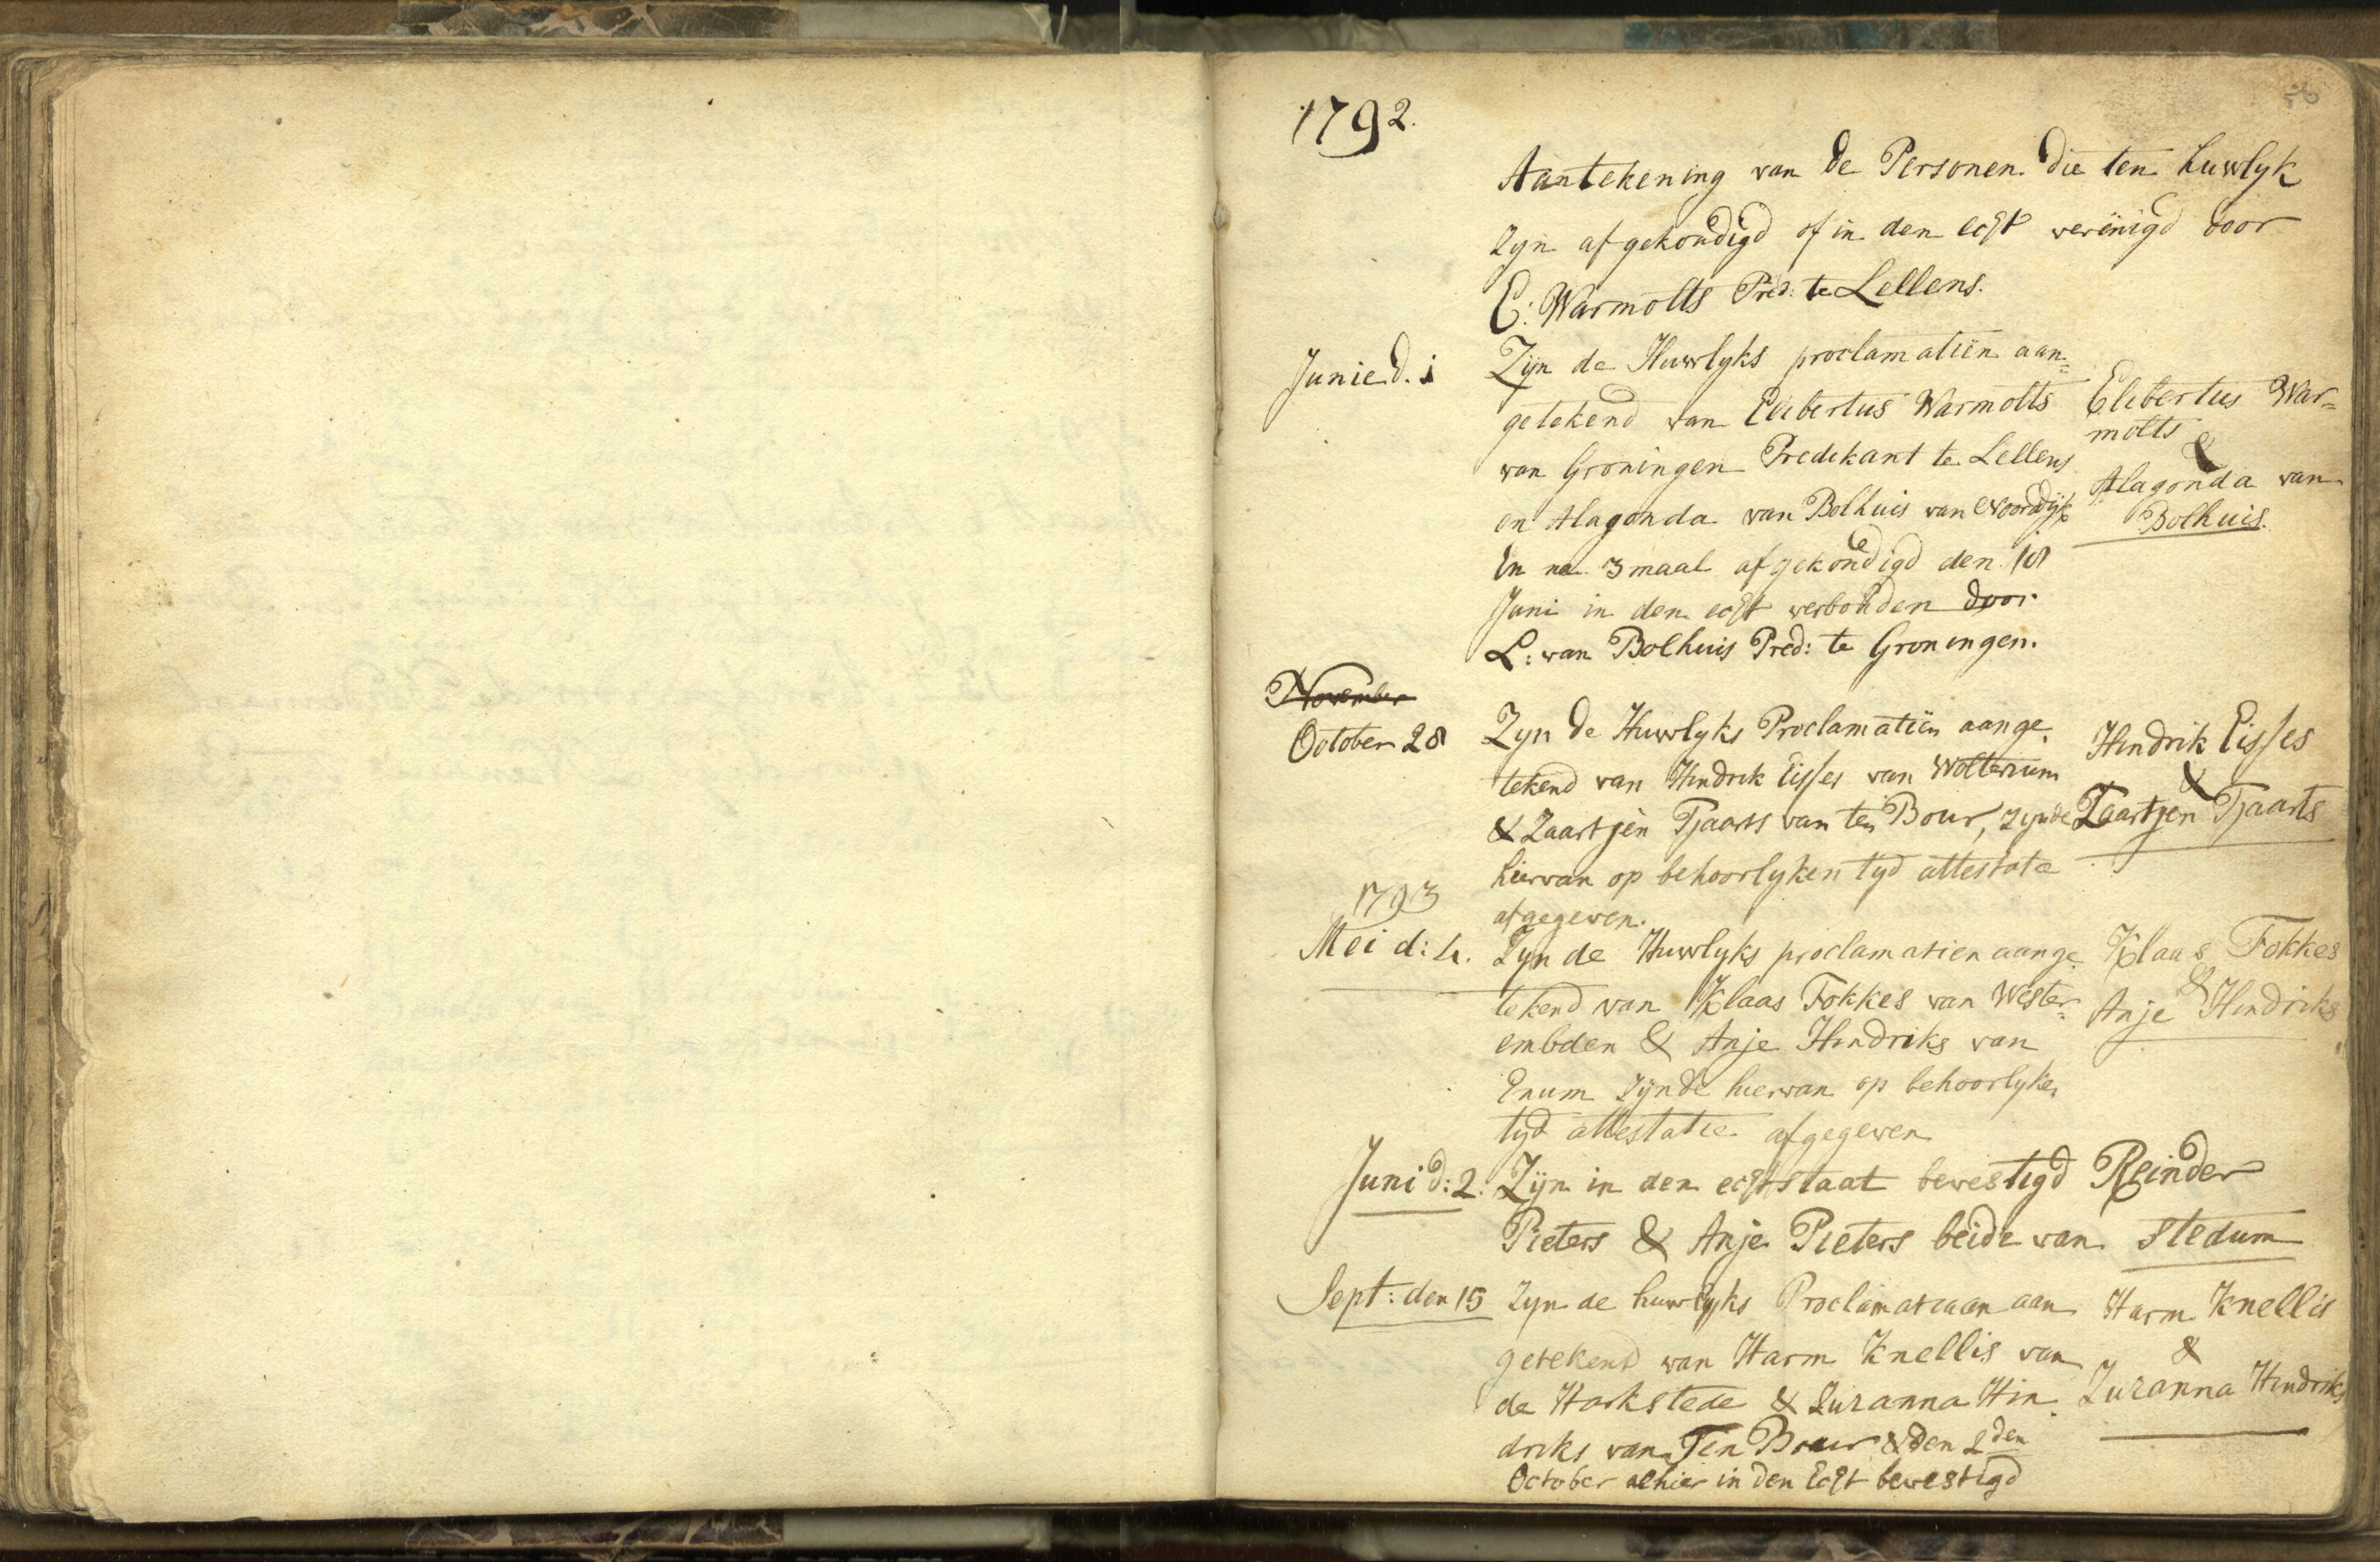 56
1792.
Aantekening van de Personen die ten huwlyk
Zyn afgekondigd of in den echt verëinigd door
E: Warmolts Pred: te Lellens.
Junie d. 1
Zijn de Huwlyks proclamatiën aan=
getekend van Elibertus Warmolts
van Groningen Predikant te Lellens
en Alagonda van Bolhuis van Noordijk
En na 3 maal afgekondigd den 18
Juni in den echt verbonden door
L: van Bolhuis Pred: te Groningen.
Elibertus War=
molts
&
Alagonda van
Bolhuis.
November
October 28
Zyn de Huwlyks Proclamatiën aange
tekend van Hindrik Eisses van Wolterium
& Zaartjen Tjaarts van ten Bour, zynde
hiervan op behoorlyken tyd attestatie
afgegeven.
Hindrik Eisses
&
Zaartjen Tjaarts
1793
Mei d: 4.
Zyn de Huwlyks proclamatien aange
tekend van Klaas Fokkes van Wester=
embden & Anje Hindriks van
Enum zijnde hiervan op behoorlyke
tyd attestatie afgegeven
Klaas Fokkes
&
Anje Hindriks
Juni d: 2.
Zijn in den echtstaat bevestigd Reinder
Pieters & Anje Pieters beide van Stedum
Sept: den 15
Zyn de huwlyks Proclamatiaan aan
getekend van Harm Knellis van
de Harkstede & Zuzanna Hin
driks van Ten Bour & den 2den
October alhier in den Echt bevestigd
Harm Knellis
&
Zuzanna Hindriks